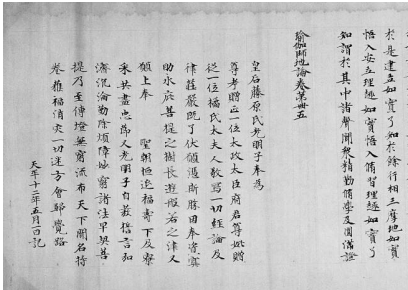 於是建立如實了知於餘行相三摩地如實
悟入安立理趣如實悟入脩習理趣如實了
知謂於其中諸聲聞衆精勤脩學及圓滿證
瑜伽師地論卷第卅五
皇后藤原氏光明子奉為
尊考贈正一位太政太臣府君尊妣贈
從一位橘氏太夫人敬寫一切經論及
律莊嚴既了伏願憑斯勝因奉資冥
助永庇菩提之樹長遊般若之津又
願上奉 聖朝恒延福壽下及寮
采共盡忠節又光明子自發誓言弘
濟沉淪勤除煩障妙窮諸法早契菩
提乃至傳燈無窮流布天下聞名持
卷獲福消灾一切迷方會歸覺路
天平十二年五月一日記